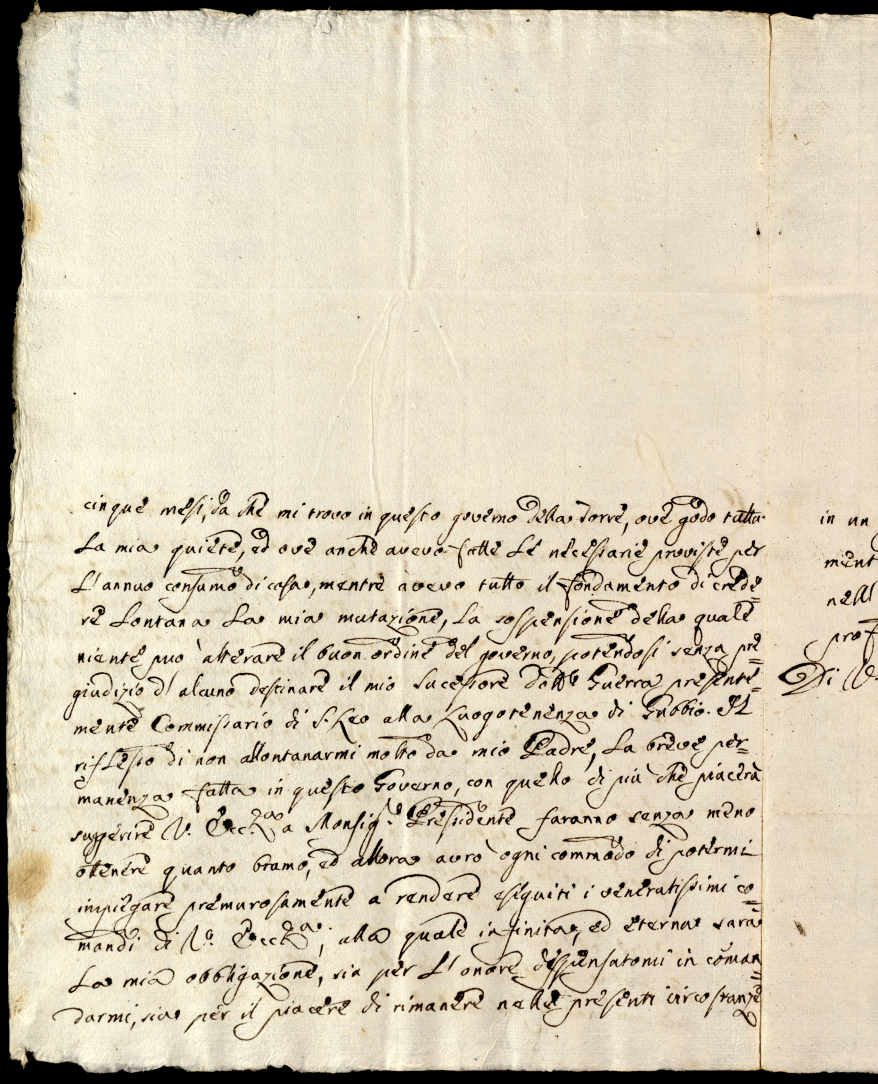 cinque mesi, da che mi trovo in questo governo della Torre, ove godo tutta
La mia quiete, ed ove anche avevo fatte Le necessarie proviste per
L'annuo consumo di casa, mentre avevo tutto il fondamento di crede=
re Lontana La mia mutazione, La sospensione della quale
niente può alterare il buon ordine del governo, potendosi senza pre=
giudizio d'alcuno destinare il mio Sucessore Guerra presente=
mente Commissario di S. Leo alla Luogotenenza di Gubbio. Il
riflesso di non allontanarmi molto da mio Padre, La breve per=
manenza fatta in questo Governo, con quello di più che piacerà
suggerire V. Ecc.za a Monsig.r Presidente faranno senza meno
ottenere quanto bramo, ed allora avrò ogni commodo di potermi
impiegare premurosamente a rendere eseguiti i veneratissimi co=
mandi di V.a Ecc.za, alla quale infinita, ed eterna sarà
La mia obbligazione, sia per L'onore dispensatomi in coman=
darmi, sia per il piacere di rimanere nelle presenti circostanze
in un
ment
nell
prof
Di V.